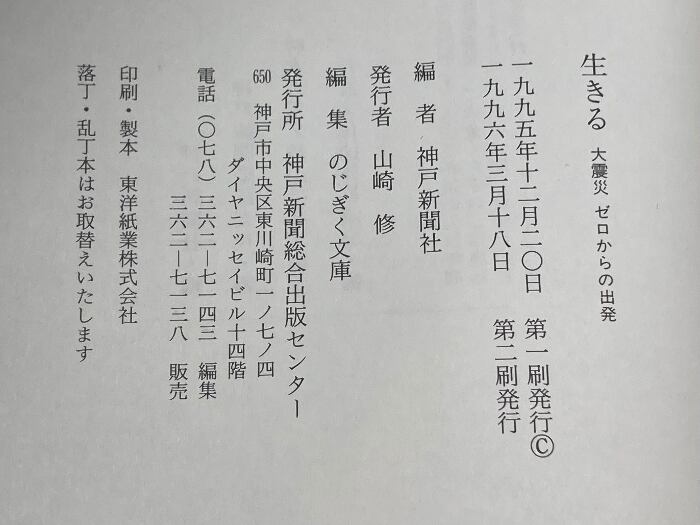 生きる 大震災 ゼロからの出発
一九九五年十二月二〇日 第一刷発行Ⓒ
一九九六年三月十八日 第二刷発行
編者 神戸新聞社
発行者 山崎 修
編集 のじぎく文庫
発行所 神戸新聞総合出版センター
650 神戸市中央区東川崎町一ノ七ノ四
ダイヤニッセイビル十四階
電話(〇七八)三六二―七一四三 編集
三六二―七一三八 販売
印刷・製本 東洋紙業株式会社
落丁・乱丁本はお取替えいたします